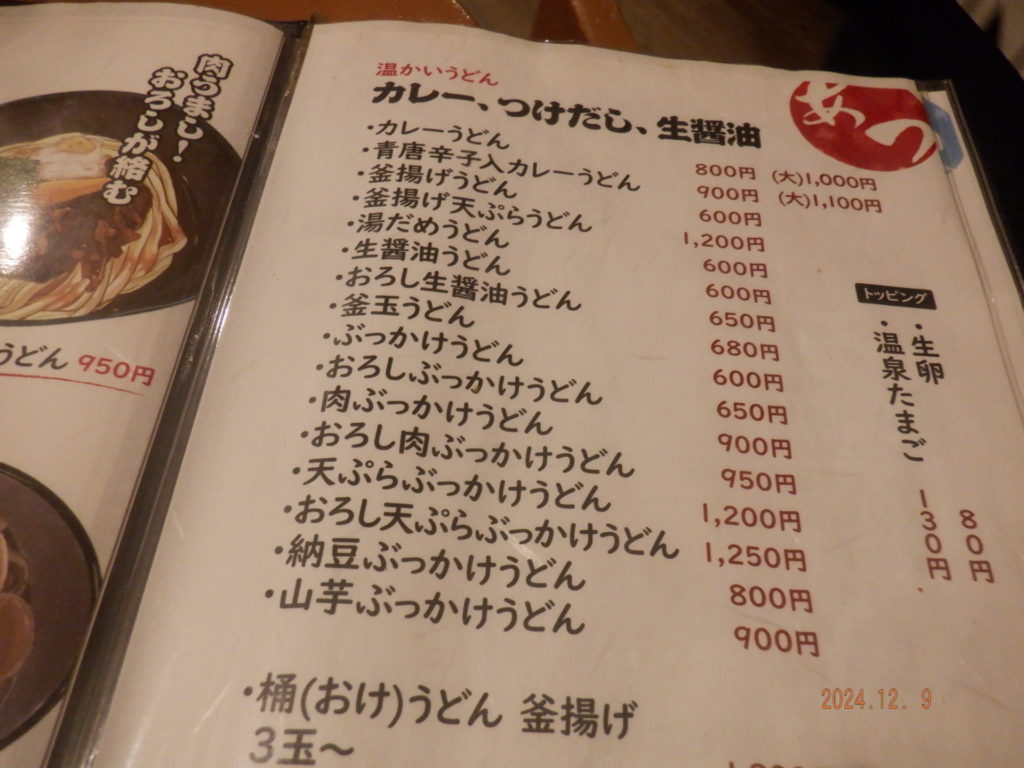 肉うまし！
おろしが絡む
うどん 950円
温かいうどん
カレー、つけだし、生醤油
あつ
・カレーうどん 800円 (大)1,000円
・青唐辛子入カレーうどん 900円 (大)1,100円
・釜揚げうどん 600円
・釜揚げ天ぷらうどん 1,200円
・湯だめうどん 600円
・生醤油うどん 600円
・おろし生醤油うどん 650円
・釜玉うどん 680円
・ぶっかけうどん 600円
・おろしぶっかけうどん 650円
・肉ぶっかけうどん 900円
・おろし肉ぶっかけうどん 950円
・天ぷらぶっかけうどん 1,200円
・おろし天ぷらぶっかけうどん 1,250円
・納豆ぶっかけうどん 800円
・山芋ぶっかけうどん 900円
トッピング
・生卵 80円
・温泉たまご 130円
・桶(おけ)うどん 釜揚げ
3玉〜
2024.12. 9